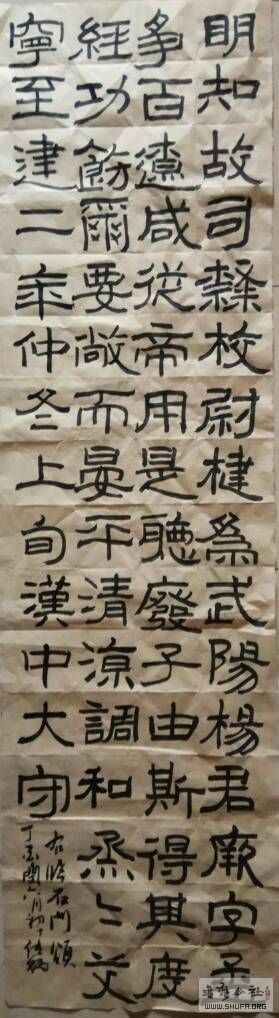 明知故司隸校尉楗爲武陽楊君厥字孟
爭百遼咸從帝用是聽廢子由斯得其度
經功飭爾要敞而晏平清涼調和烝=艾
寧至建二年仲冬上旬漢中大守
右临石門頌
丁酉六月初
書法公社
WWW.SHUFA.ORG